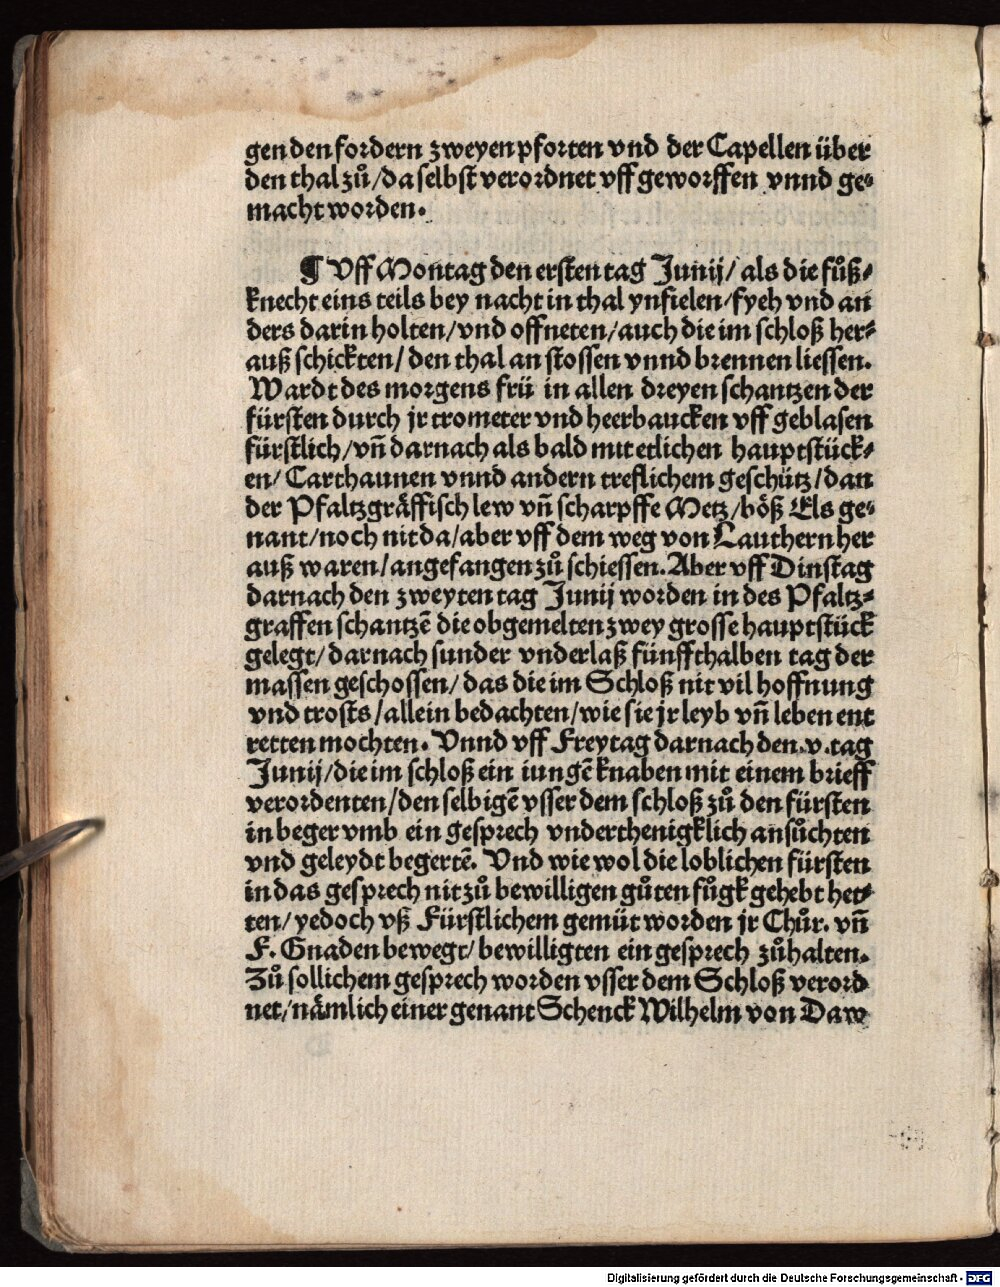 gen den fordern zweyen pforten vnd der Capellen über
den thal zuͦ/da selbst verordnet vff geworffen vnnd ge⸗
macht worden.
¶ Vff Montag den ersten tag Junij/ als die fuͦß⸗
knecht eins teils bey nacht in thal ynfielen/fyeh vnd an
ders darin holten/vnd offneten/auch die im schloß her⸗
auß schickten/ den thal an stossen vnnd brennen liessen.
Wardt des morgens frü in allen dreyen schantzen der
fürsten durch jr trometer vnd heerbaucken vff geblasen
fürstlich/vñ darnach als bald mit etlichen hauptstück⸗
en/ Carthaunen vnnd andern treflichem geschütz/dan
der Pfaltzgräffisch lew vñ scharpffe Metz/böß Els ge⸗
nant/noch nit da/aber vff dem weg von Lauthern her
auß waren/angefangen zuͦ schiessen. Aber vff Dinstag
darnach den zweyten tag Junij worden in des Pfaltz⸗
graffen schantzē die obgemelten zwey grosse hauptstück
gelegt/darnach sunder vnderlaß fünffthalben tag der
massen geschossen/ das die im Schloß nit vil hoffnung
vnd trosts/allein bedachten/wie sie jr leyb vñ leben ent
retten mochten. Vnnd vff Freytag darnach den.v.tag
Junij/die im schloß ein iungē knaben mit einem brieff
verordenten/den selbigē vsser dem schloß zuͦ den fürsten
in beger vmb ein gesprech vnderthenigklich ansuͦchten
vnd geleydt begertē. Vnd wie wol die loblichen fürsten
in das gesprech nit zuͦ bewilligen guͦten fuͦgk gehebt het⸗
ten/yedoch vß Fürstlichem gemüt worden jr Chuͦr. vñ
F. Gnaden bewegt/bewilligten ein gesprech zuͦhalten.
Zuͦ sollichem gesprech worden vsser dem Schloß verord
net/nämlich einer genant Schenck Wilhelm von Daw
Digitalisierung gefördert durch die Deutsche Forschungsgemeinschaft - DFG